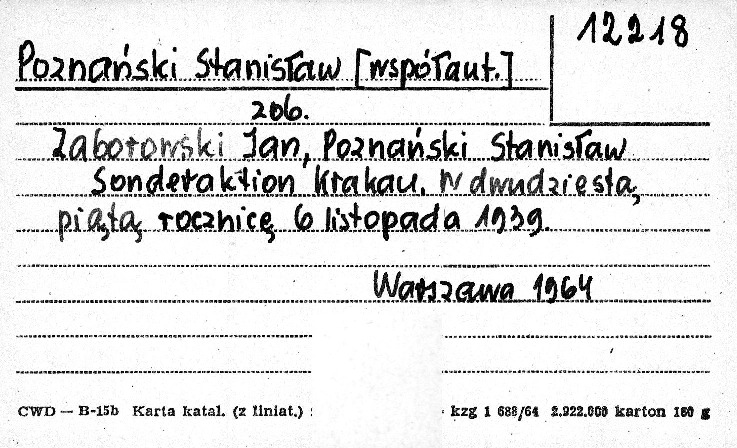 12218
Poznański Stanisław [współaut.]
zob.
Zaborowski Jan, Poznański Stanisław
Sonderaktion Krakau. W dwudziestą
piątą rocznicę 6 listopada 1939.
Warszawa 1964
CWD — B-15b Karta katal. (z liniat.) : kzg 1 688/64 2.922.000 karton 160 g